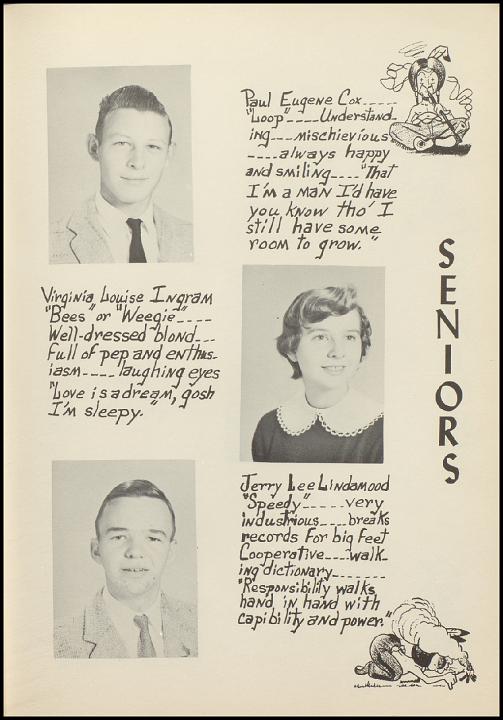 Paul Eugene Cox_____
"Loop"____Understand-
ing___mischievious
____always happy
and smiling____"That
I'm a man I'd have
you know tho' I
still have some
room to grow."
SENIORS
Virginia Louise Ingram
"Bees" or "Weegie"____
Well-dressed blond___
Full of pep and enthus-
iasm____laughing eyes
"Love is a dream, gosh
I'm sleepy."
Jerry Lee Lindamood
"Speedy"_____very
industrious____breaks
records for big feet
Cooperative___walk-
ing dictionary_______
"Responsibility walks
hand in hand with
capibility and power."